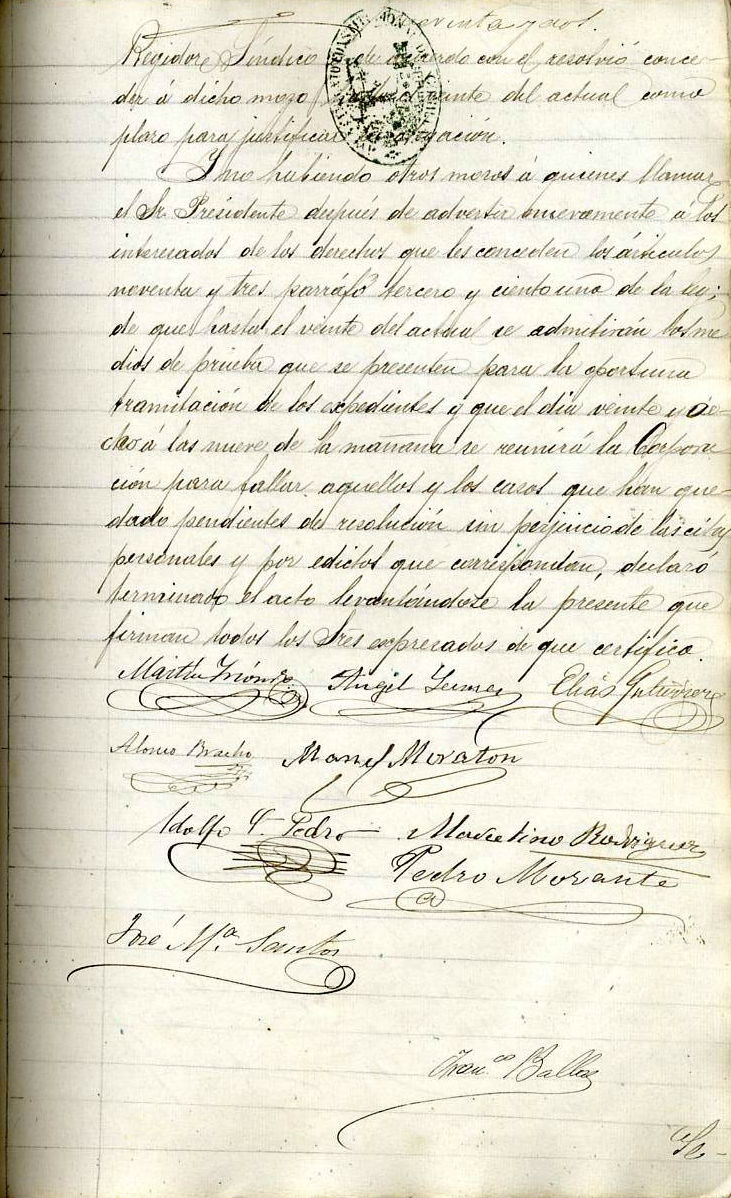 y dos.
Regidor Síndico de acuerdo con el resolvió conce-
der á dicho mozo del actual como
plazo para justificar
Y no habiendo otros mozos á quienes llamar
el Sr. Presidente después de advertir nuevamente á los
interesados de los derechos que les conceden los artículos
noventa y tres parráfo tercero y ciento uno de la ley;
de que hasta el veinte del actual se admitirán los me
dios de prueba que se presenten para la oportuna
tramitación de los expedientes y que el día veinte y o-
cho á las nueve de la mañana se reunirá la Corpora
ción para fallar aquellos y los casos que han que-
dado pendientes de resolución sin perjuicio de las citas
personales y por edictos que correspondan, declaró
terminado el acto levantándose la presente que
firman todos los Sres expresados de que certifico.
Martín Angel Elías Gutiérrez
Alonso Manuel Moratón
Adolfo Pedro Marcelino Rodriguez
Pedro Morante
José Mª Santos
Franco
Se-